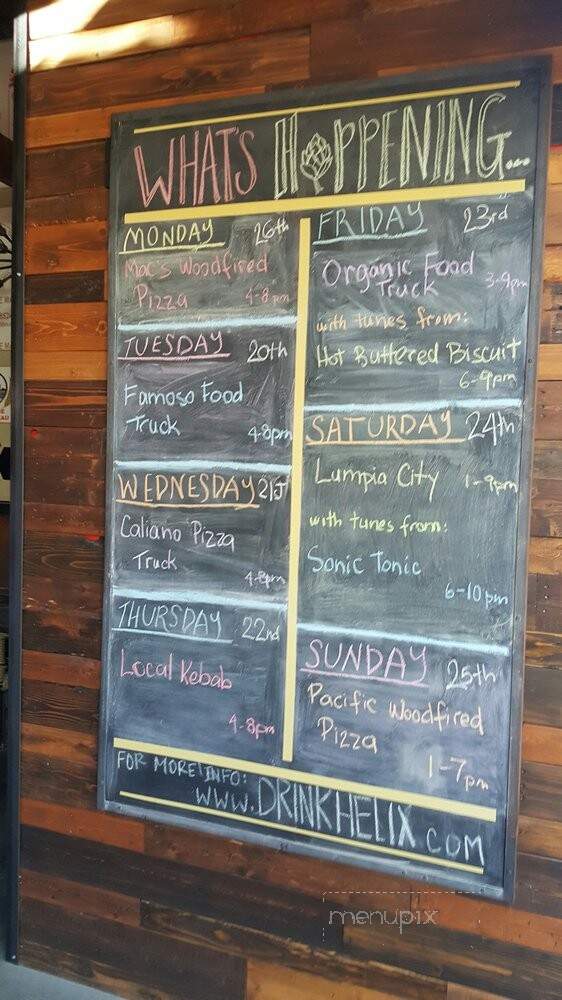 WHAT'S HOPPENING...
MONDAY 26th
Mac's Woodfired
Pizza 4-8pm
TUESDAY 20th
Famoso Food
Truck 4-8pm
WEDNESDAY 21st
Caliano Pizza
Truck 4-8pm
THURSDAY 22nd
Local Kebab
4-8pm
FRIDAY 23rd
Organic Food
Truck 3-9pm
with tunes from:
Hot Buttered Biscuit
6-9pm
SATURDAY 24th
Lumpia City 1-9pm
with tunes from:
Sonic Tonic
6-10pm
SUNDAY 25th
Pacific Woodfired
Pizza
1-7pm
FOR MORE INFO:
WWW.DRINKHELIX.COM
menupix